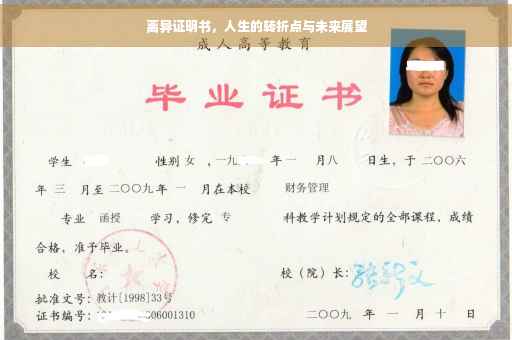 离异证明书，人生的转折点与未来展望
成人高等教育
毕业证书
学生 性别 女 ，一九 年 一 月 八 日生，于 二〇〇六
年 三 月至 二〇〇九 年 一 月在本校 财务管理
专业 函授 学习，修完 专 科教学计划规定的全部课程，成绩
合格，准予毕业。
校 名： 校（院）长：
批准文号：教计[1998]33号
证书编号：1 06001310 二〇〇九 年 一 月 十 日